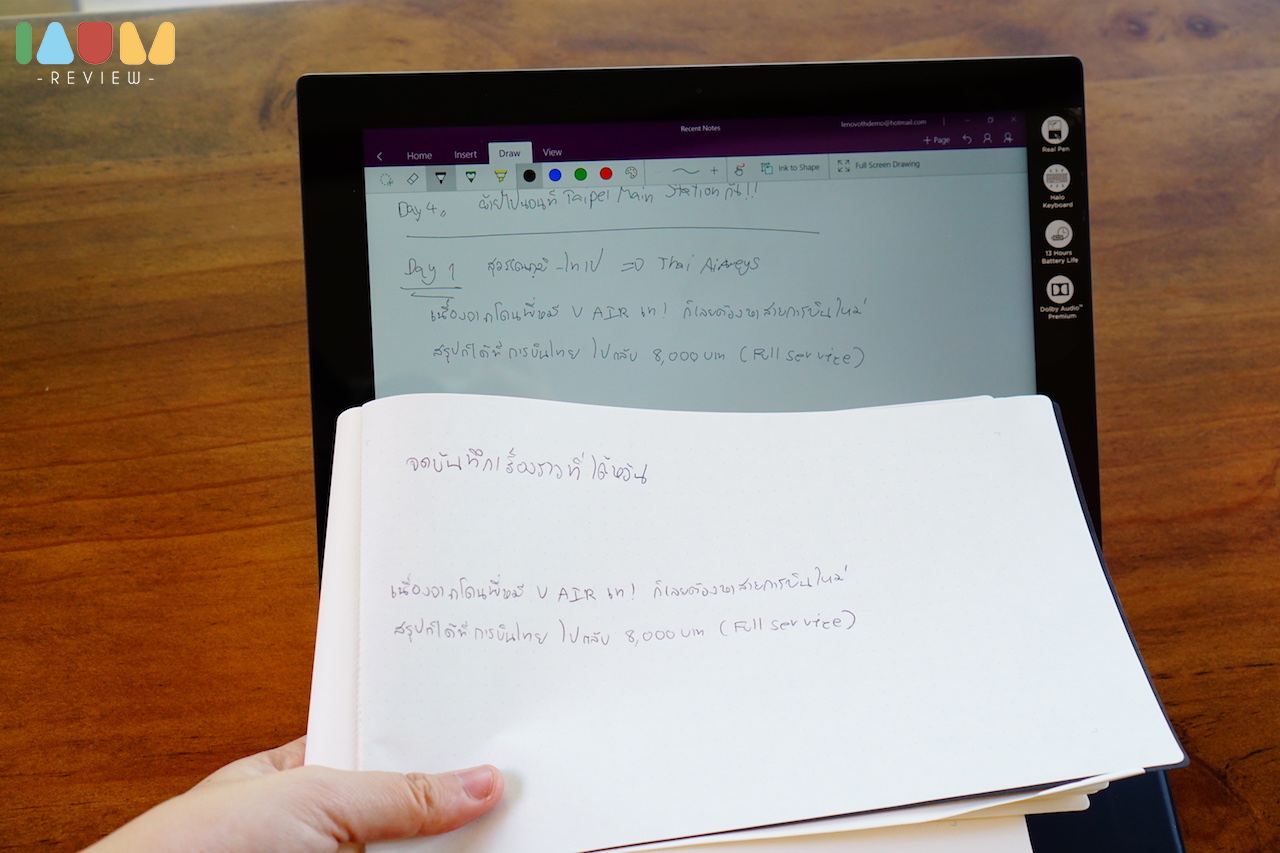 IAUM
-REVIEW-
Recent Notes
lenovothdemo@hotmail.com
Home Insert Draw View
+ Page
Ink to Shape Full Screen Drawing
Real Pen
Halo
Keyboard
13 Hours
Battery Life
Dolby Audio™
Premium
Day 4 ย้ายไปนอนที่ Taipei Main Station กัน!!
Day 1 สุวรรณภูมิ - ไทเป => Thai Airways
เนื่องจากโดนพี่หมี V AIR เท! ก็เลยต้องหาสายการบินใหม่
สรุปก็ได้ที่การบินไทย ไปกลับ 8,000 บาท (Full Service)
จดบันทึกเรื่องราวที่ไต้หวัน
เนื่องจากโดนพี่หมี V AIR เท! ก็เลยต้องหาสายการบินใหม่
สรุปก็ได้ที่การบินไทย ไปกลับ 8,000 บาท (Full Service)